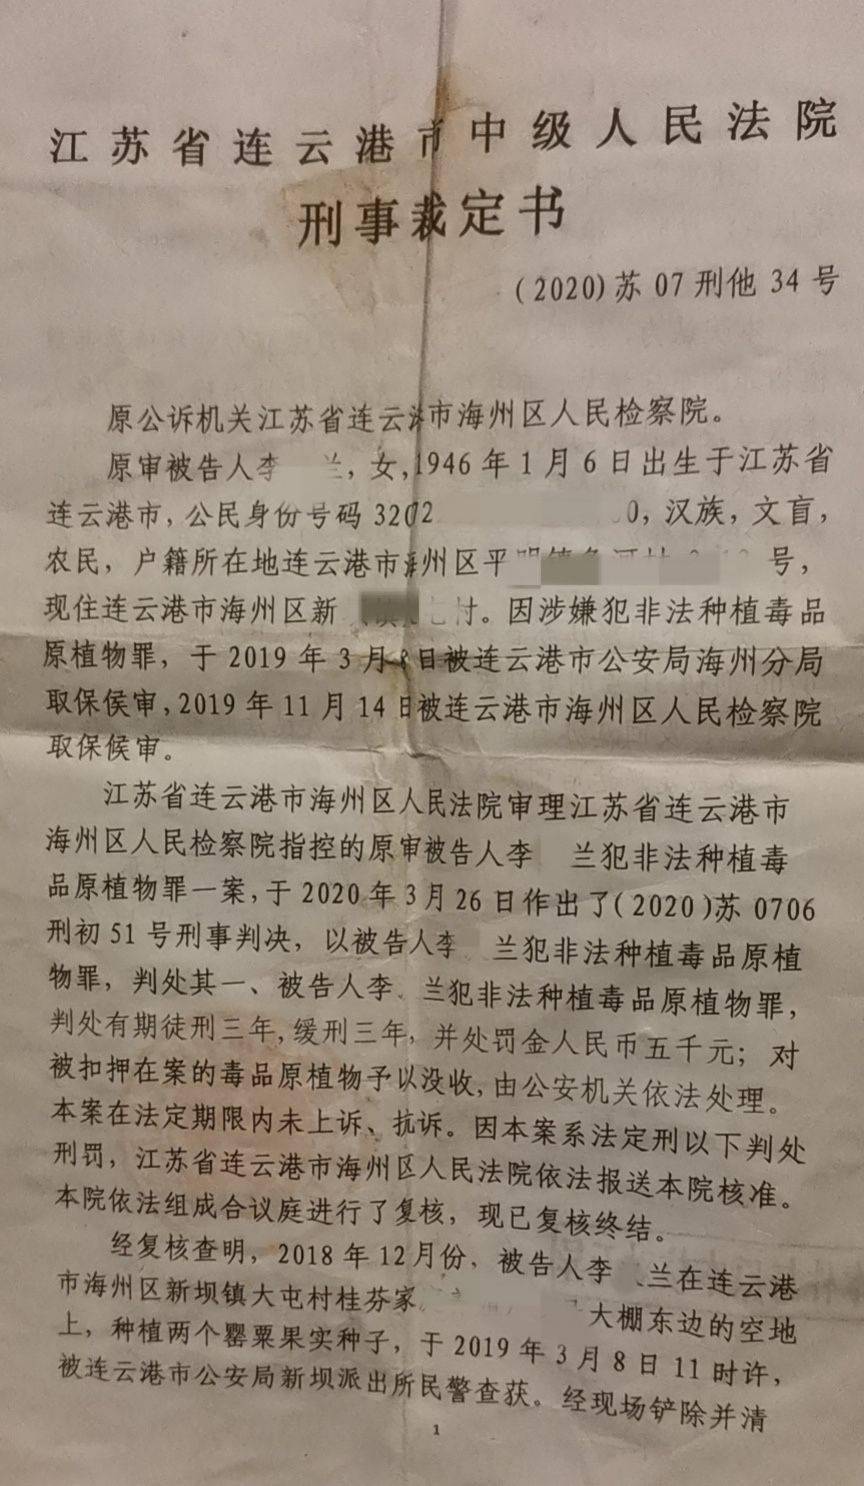 江苏省连云港市中级人民法院
刑事裁定书
(2020)苏 07 刑他 34 号
原公诉机关江苏省连云港市海州区人民检察院。
原审被告人李 兰，女，1946 年 1 月 6 日出生于江苏省
连云港市，公民身份号码 3207 0，汉族，文盲，
农民，户籍所在地连云港市海州区平 号，
现住连云港市海州区新 村。因涉嫌犯非法种植毒品
原植物罪，于 2019 年 3 月 8 日被连云港市公安局海州分局
取保侯审，2019 年 11 月 14 日被连云港市海州区人民检察院
取保候审。
江苏省连云港市海州区人民法院审理江苏省连云港市
海州区人民检察院指控的原审被告人李 兰犯非法种植毒
品原植物罪一案，于 2020 年 3 月 26 日作出了(2020)苏 0706
刑初 51 号刑事判决，以被告人李 兰犯非法种植毒品原植
物罪，判处其一、被告人李 兰犯非法种植毒品原植物罪，
判处有期徒刑三年，缓刑三年，并处罚金人民币五千元；对
被扣押在案的毒品原植物予以没收，由公安机关依法处理。
本案在法定期限内未上诉、抗诉。因本案系法定刑以下判处
刑罚，江苏省连云港市海州区人民法院依法报送本院核准。
本院依法组成合议庭进行了复核，现已复核终结。
经复核查明，2018 年 12 月份，被告人李 兰在连云港
市海州区新坝镇大屯村桂芬家 大棚东边的空地
上，种植两个罂粟果实种子，于 2019 年 3 月 8 日 11 时许，
被连云港市公安局新坝派出所民警查获。经现场铲除并清
1